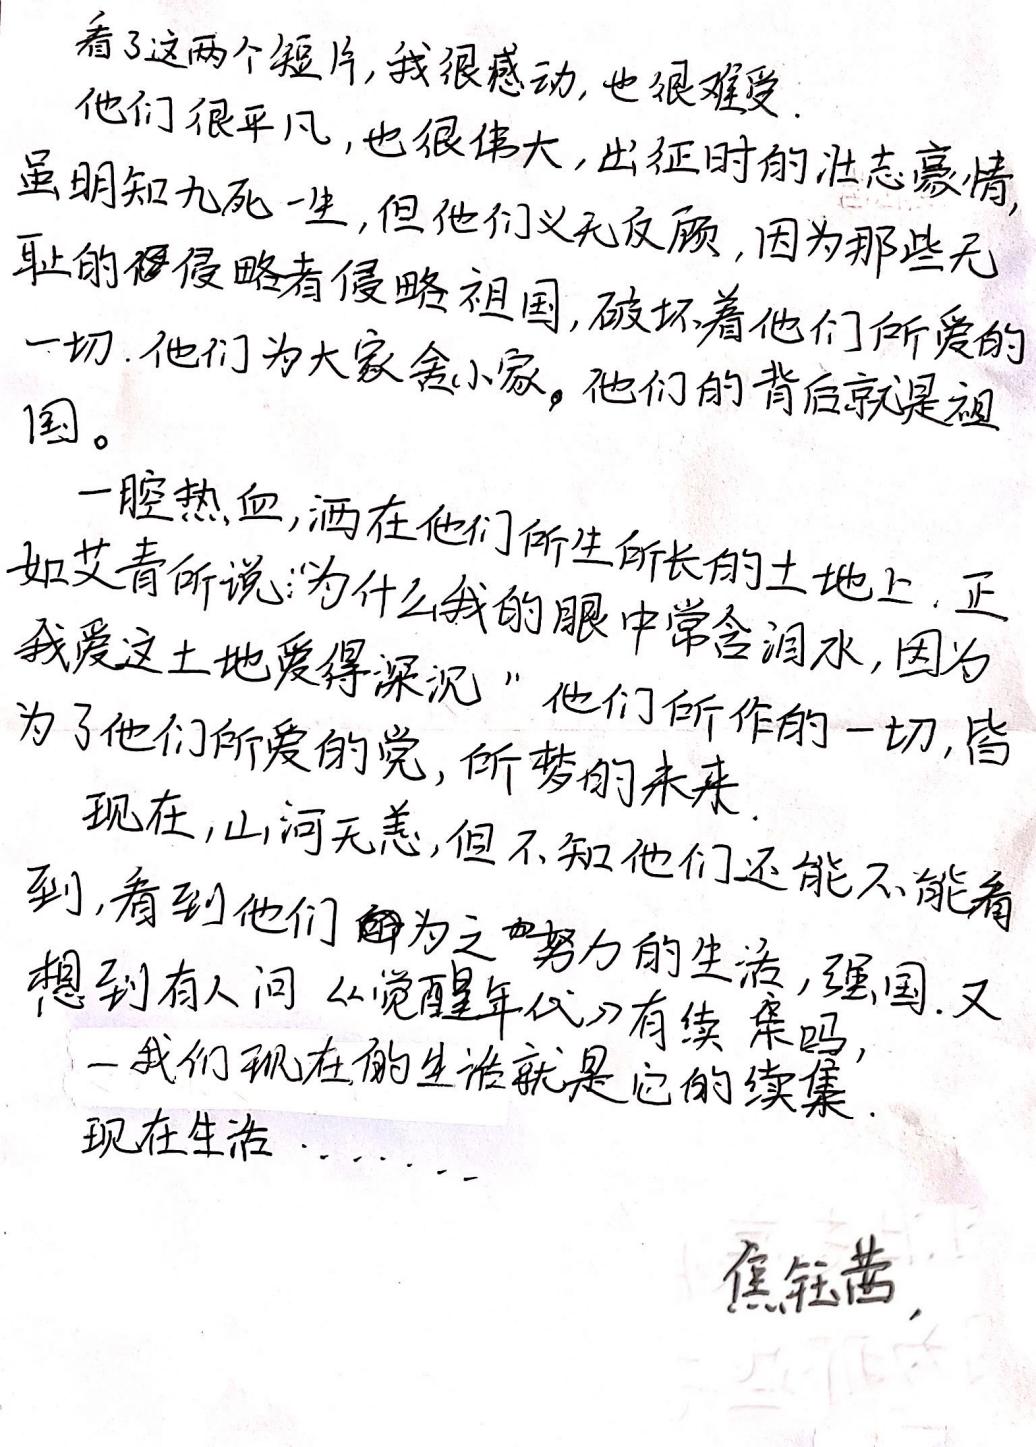 看了这两个短片，我很感动，也很难受.
他们很平凡，也很伟大，出征时的壮志豪情，
虽明知九死一生，但他们义无反顾，因为那些无
耻的侵略者侵略祖国，破坏着他们所爱的
一切.他们为大家舍小家。他们的背后就是祖
国。
一腔热血，洒在他们所生所长的土地上.正
如艾青所说：“为什么我的眼中常含泪水，因为
我爱这土地爱得深沉”他们所作的一切，皆
为了他们所爱的党，所梦的未来.
现在，山河无恙，但不知他们还能不能看
到，看到他们为之努力的生活，强国.又
想到有人问《觉醒年代》有续集吗，
—我们现在的生活就是它的续集.
现在生活.......
焦钰茜，